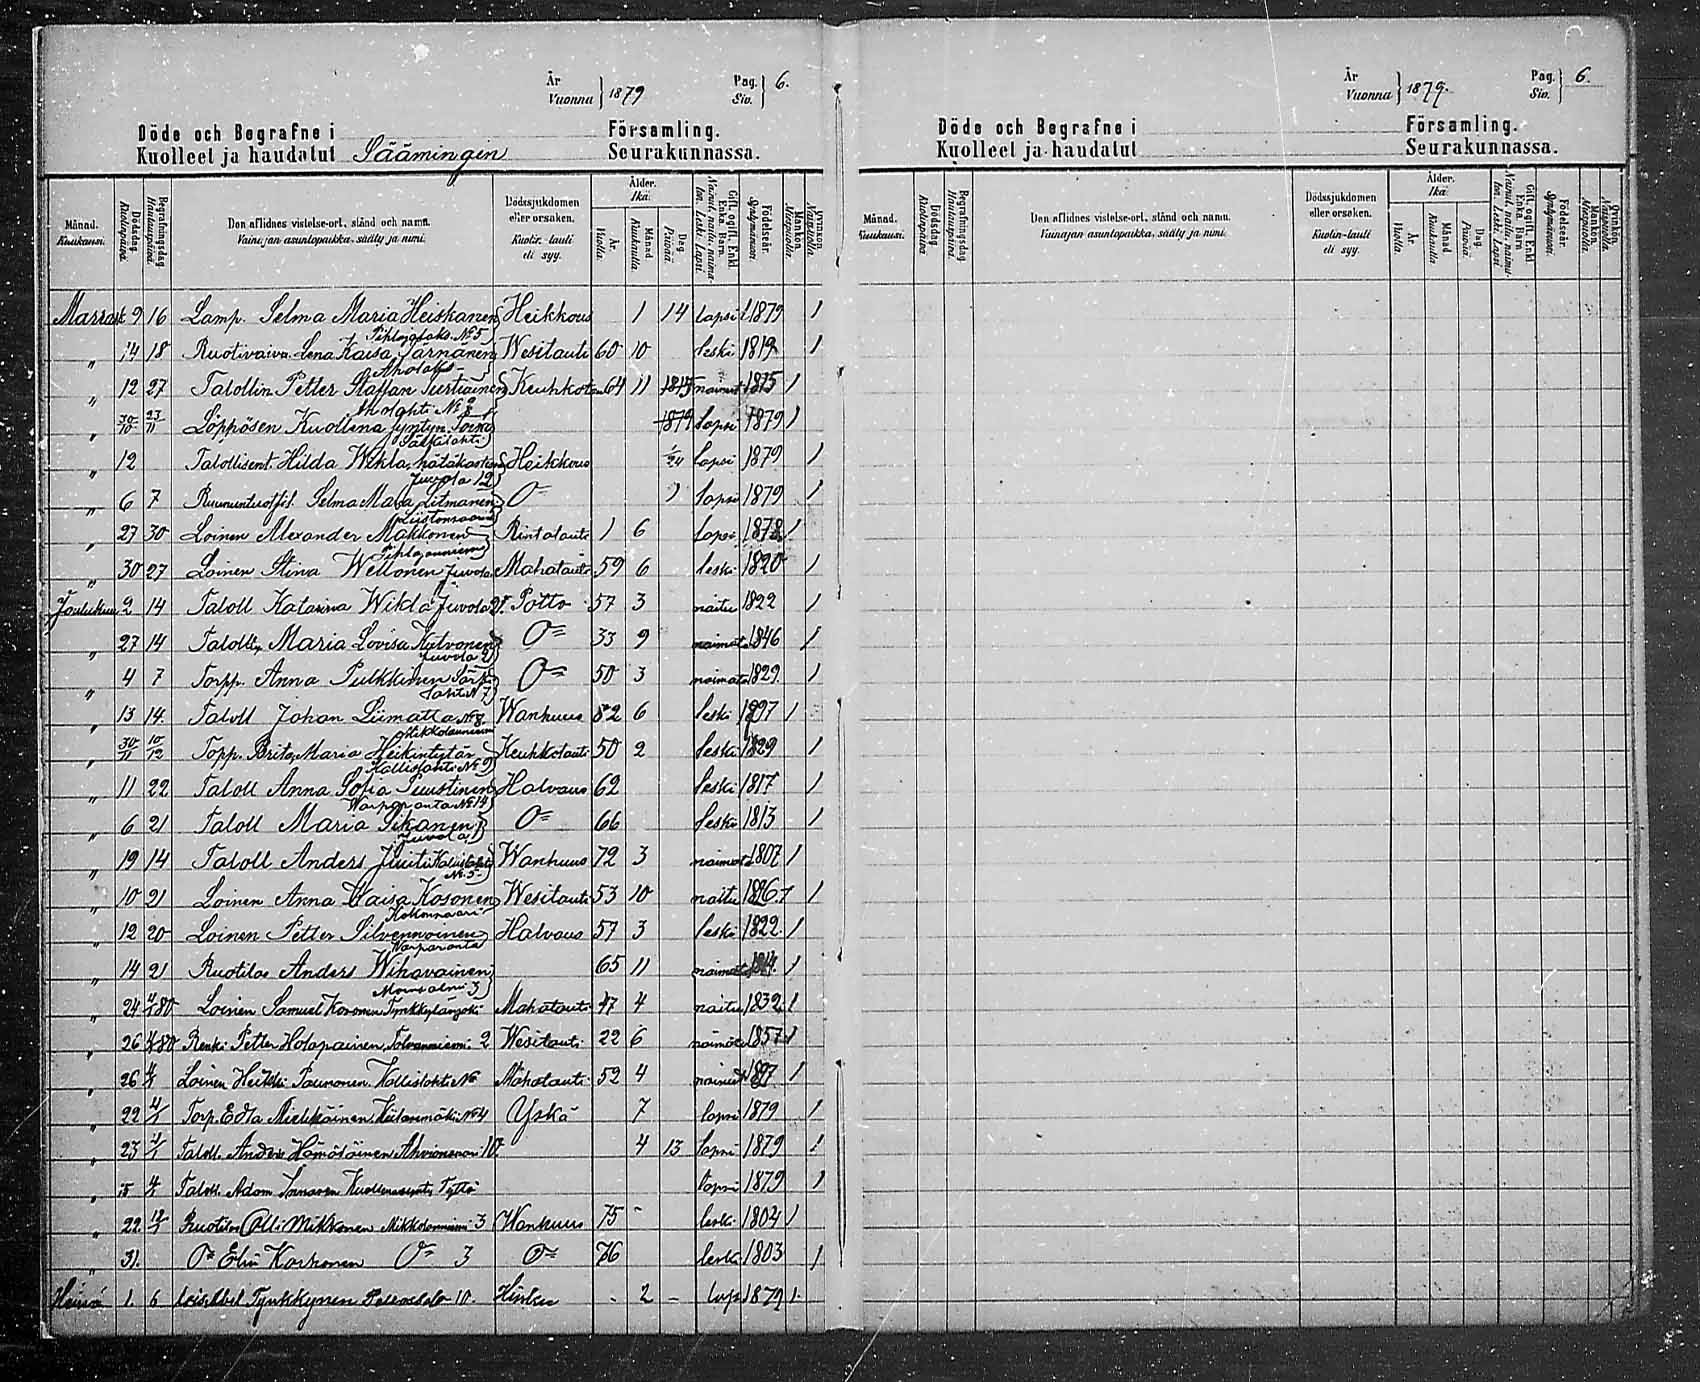 År
Vuonna } 1879
Pag.
Siv. } 6.
Döde och Begrafne i Församling.
Kuolleet ja haudatut Säämingin Seurakunnassa.
Månad. Kuukausi.
Dödsdag Kuolinpäivä.
Begrafningsdag Hautauspäivä.
Den aflidnes vistelse-ort, stånd och namn. Vainajan asuntopaikka, sääty ja nimi.
Dödssjukdomen eller orsaken. Kuolin-tauti eli syy.
Ålder. Ikä.
År. Vuotta.
Månad Kuukautta
Dag Päivää
Gift, ogift, Enkl. Enka, Barn. Nainut, naitu, naimaton, Leski, Lapsi
Födelseår. Syntymävuosi.
Mankön. Miespuolta
Qvinkön. Naispuolta.
Marrask 9 16 Lamp. Selma Maria Heiskanen Heikkous 1 14 lapsi 1879 1
Pihlajalaks. No 5
" 14 18 Ruotivaiva. Lena Kaisa Järnanen Wesitauti 60 10 leski 1819 1
" 12 27 Talollin Petter Staffan Keuhkot 64 11 1815 nainut 1815 1
" 30/10 23/11 Löppösen Kuollena Syntyn. 1879 lapsi 1879 1
" 12 Talollisent. Hilda Wikla, hätäkast Heikkous 1/24 lapsi 1879 1
Juvola 12
" 6 7 Selma Mara Litmanen O= 1 lapsi 1879 1
" 27 30 Loinen Alexander Makkonen Rintatauti 1 6 lapsi 1878 1
Pihlajaniemi
" 30 27 Loinen Stina Wellonen Juvola Mahatauti 59 6 leski 1820 1
Joulukuu 2 14 Taloll Katarina Wikla Juvola 21 Polto 57 3 naitu 1822 1
" 27 14 Maria Lovisa Kutvonen O= 33 9 naimato 1846 1
Juvola 2
" 4 7 Torpp. Anna Pulkkinen O= 50 3 naimato 1829. 1
" 13 14. Taloll Johan Liimatta No 8. Wanhuus 82 6 leski 1797 1
Mikkolanniemi
" 30/11 10/12 Topp. Brita Maria Heikintytär Keuhkotauti 50 2 leski 1829 1
Kallislahti No 9
" 11 22 Taloll Anna Sofia Puustinen Halvaus 62 leski 1817 1
Warparanta No 14
" 6 21 Taloll Maria Pikanen O= 66 leski 1813 1
Juvola 1
" 19 14 Taloll Anders Juuti Kallislahti Wanhuus 72 3 naimato 1807 1
No. 5
" 10 21 Loinen Anna Kaisa Kosonen Wesitauti 53 10 naitu 1826 1
" 12 20 Loinen Petter Silvennoinen Halvaus 57 3 leski 1822 1
Warparanta
" 14 21 Ruotilas Anders Wihavainen 65 11 naimato 1814. 1
3
" 24 4/1 80 Loinen Samuel Kosonen Tynkkylänjoki Mahatauti 47 4 naitu 1832 1
" 26 4/1 80 Renki Petter Holopainen, Tolvanniemi 2 Wesitauti 22 6 naimato 1857 1
" 26 4/1 Loinen Heikki Paunonen Kallislahti No Mahatauti 52 4 nainut 1827 1
" 22 4/1 Torp. Edla Miettinen Keitanmäki No 4 Yskä 7 lapsi 1879 1
" 23 4/1 Taloll. Anders Hämäläinen Ahvionsaari 10. 4 13 lapsi 1879 1
" 5 4/1 Taloll. Adam Innasen Kuollena synt. Tyttö lapsi 1879 1
" 22 12/1 Ruotilas Olli Mikkonen Mikkolanniemi 3 Wanhuus 75 - leski 1804 1
" 31. O= Elin Karhonen O= 3 O= 76 leski 1803 1
1. 6 Tynkkynen 10. Hinku - 2 - laps 1879 1.
År
Vuonna } 1879.
Pag.
Siv. } 6.
Döde och Begrafne i Församling.
Kuolleet ja haudatut Seurakunnassa.
Månad. Kuukausi.
Dödsdag Kuolinpäivä.
Begrafningsdag Hautauspäivä.
Den aflidnes vistelse-ort, stånd och namn. Vainajan asuntopaikka, sääty ja nimi.
Dödssjukdomen eller orsaken. Kuolin-tauti eli syy.
Ålder. Ikä.
År. Vuotta.
Månad Kuukautta
Dag Päivää
Gift, ogift, Enkl. Enka, Barn. Nainut, naitu, naimaton, Leski, Lapsi
Födelseår. Syntymävuosi.
Mankön. Miespuolta.
Qvinkön. Naispuolta.